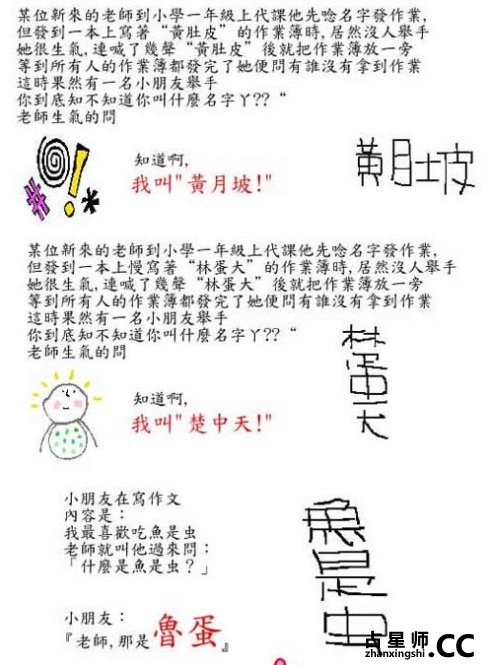 某位新來的老師到小學一年級上代課他先唸名字發作業,
但發到一本上寫著"黃肚皮"的作業薄時,居然沒人舉手
她很生氣,連喊了幾聲"黃肚皮"後就把作業薄放一旁
等到所有人的作業薄都發完了她便問有誰沒有拿到作業
這時果然有一名小朋友舉手
你到底知不知道你叫什麼名字丫??"
老師生氣的問
知道啊,
我叫"黃月坡!"
黃月土皮
某位新來的老師到小學一年級上代課他先唸名字發作業,
但發到一本上慢寫著"林蛋大"的作業薄時,居然沒人舉手
她很生氣,連喊了幾聲"林蛋大"後就把作業薄放一旁
等到所有人的作業薄都發完了她便問有誰沒有拿到作業
這時果然有一名小朋友舉手
你到底知不知道你叫什麼名字丫??"
老師生氣的問
知道啊,
我叫"楚中天!"
林蛋大
小朋友在寫作文
內容是:
我最喜歡吃魚是虫
老師就叫他過來問:
「什麼是魚是虫?」
小朋友:
『老師,那是魯蛋』
魚是虫
占星师.CC
zhanxingshi